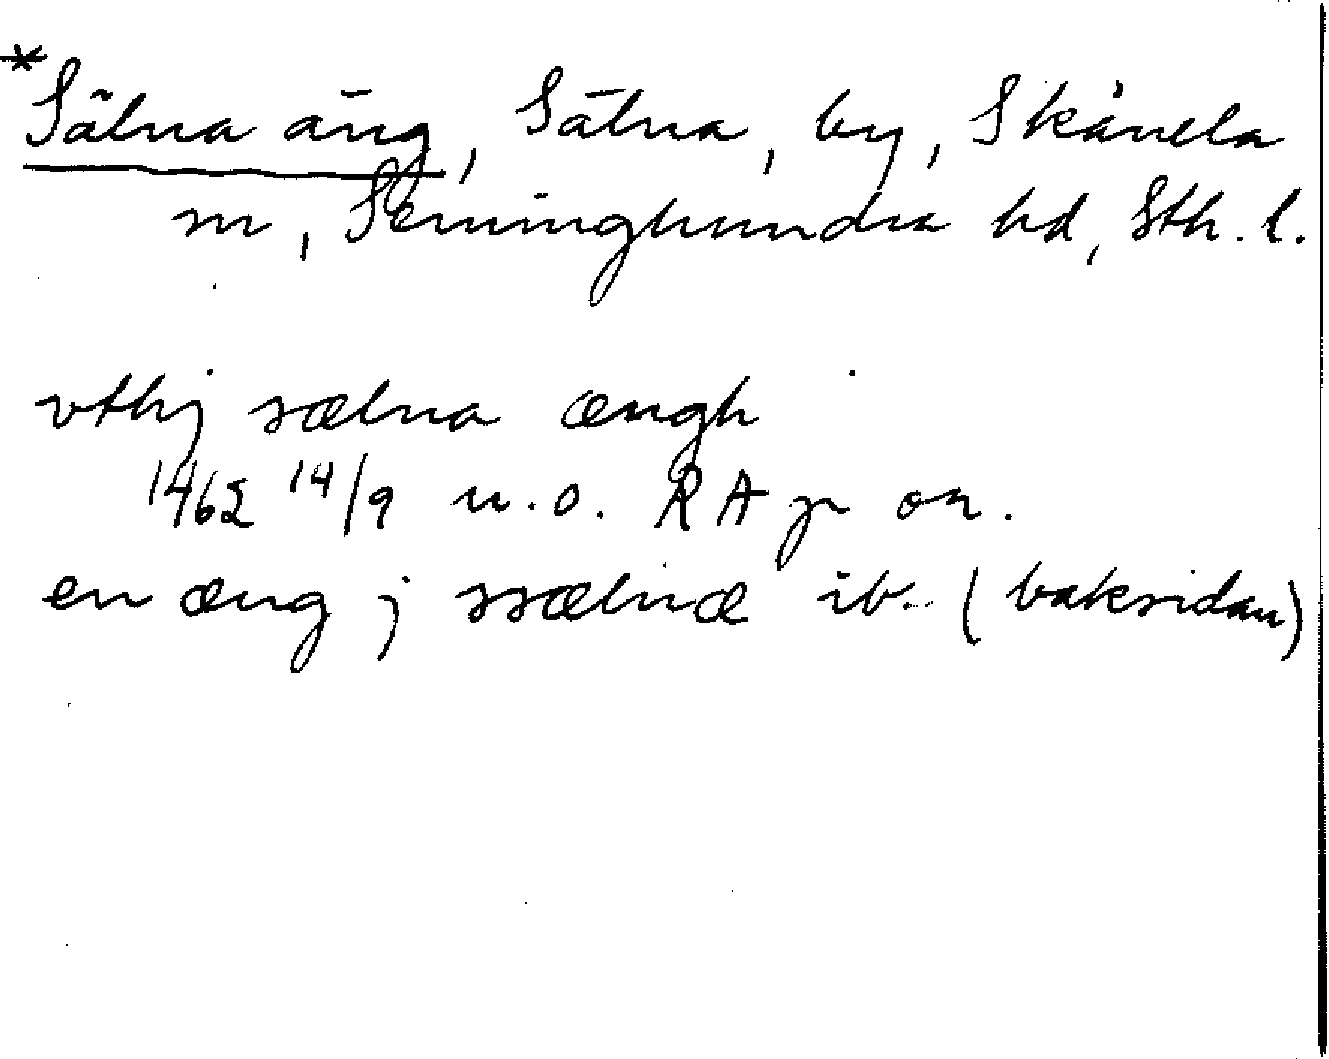 *Sälna äng, Sälna, by, Skånela
sn, Seminghundra hd, Sth. l.
vthj sælna ængh
1462 14/9 u.o. RA p or.
en æng j ssælnæ ib. (baksidan)